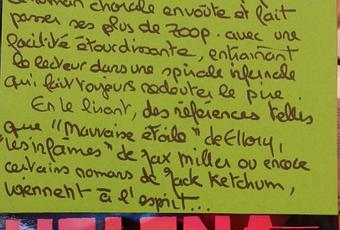 Ce roman chorale envoûte et fait
passer ses plus de 700p. avec une
facilité étourdissante, entraînant
le lecteur dans une spirale infernale
qui fait toujours redouter le pire.
En le lisant, des références telles
que "Mauvaise étoile" de Ellory,
"Les infâmes" de Jax Miller ou encore
certains romans de Jack Ketchum,
viennent à l'esprit...
HELENA